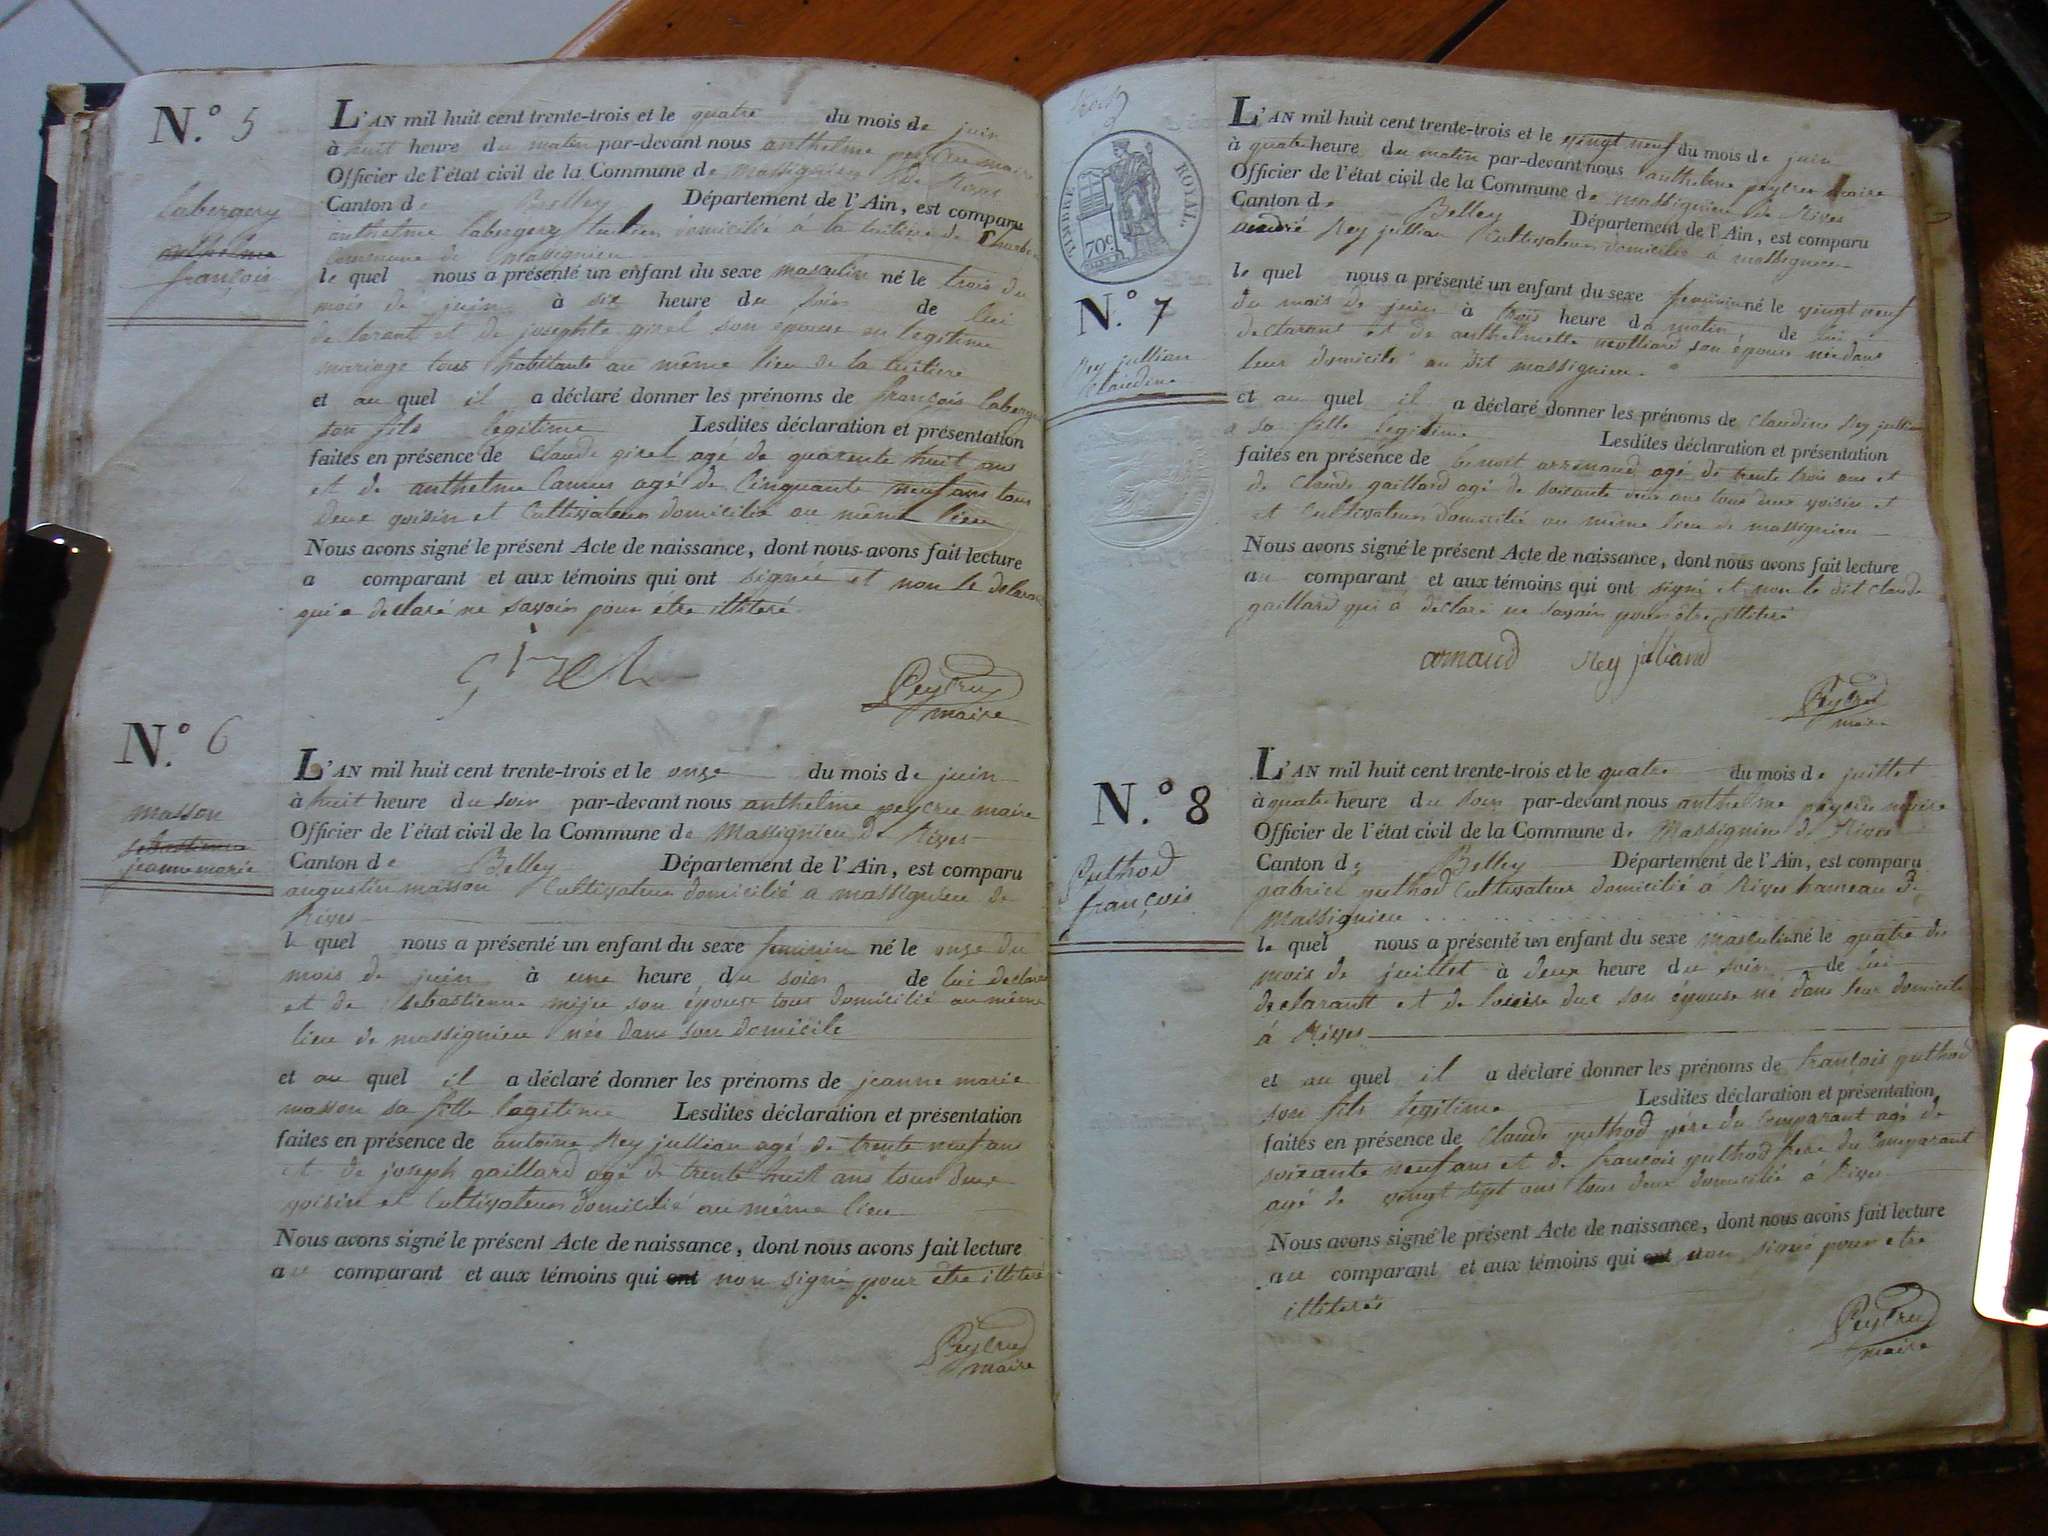 N.º 5
labergery
anthelme
françois
L'AN mil huit cent trente-trois et le quatre du mois de juin
à huit heure du matin par-devant nous anthelme peycru maire
Officier de l'état civil de la Commune de Massignieu de Rives
Canton de Belley Département de l'Ain, est comparu
anthelme labergery domicilié à la tuiliere de
Commune de Massignieu
le quel nous a présenté un enfant du sexe masculin né le trois du
mois de juin à six heure du soir de lui
declarant et de josephte girel son epouse en legitime
mariage tous habitants au même lieu de la tuiliere
et au quel il a déclaré donner les prénoms de françois laberge
son fils legitime Lesdites déclaration et présentation
faites en présence de Claude girel agé de quarente huit ans
et de anthelme Camus agé de Cinquante neuf ans tous
deux voisin et Cultivateur domicilié au même lieu
Nous avons signé le présent Acte de naissance, dont nous avons fait lecture
a comparant et aux témoins qui ont signée et non le delarant
qui a declaré ne savoir pour étre illiteré.
girel
Peycru
maire
N.º 6
masson
sebastienne
jeanne marie
L'AN mil huit cent trente-trois et le onze du mois de juin
à huit heure du soir par-devant nous anthelme peycru maire
Officier de l'état civil de la Commune de Massignieu de Rives
Canton de Belley Département de l'Ain, est comparu
augustin masson Cultivateur domicilié a massignieu de
Rives
le quel nous a présenté un enfant du sexe feminin né le onze du
mois de juin à une heure du soir de lui declarant
et de sebastienne son épouse tous domicilié au même
lieu de massignieu née dans son domicile
et au quel il a déclaré donner les prénoms de jeanne marie
masson sa fille lagitime Lesdites déclaration et présentation
faites en présence de antoine Rey jullian agé de trente neuf ans
et de joseph gaillard agé de trente huit ans tous deux
voisin et Cultivateur domicilié au même lieu
Nous avons signé le présent Acte de naissance, dont nous avons fait lecture
au comparant et aux témoins qui ont non signé pour être illiteré
Peycru
maire
TIMBRE ROYAL
70c.
N.º 7
Rey jullian
Claudine
L'AN mil huit cent trente-trois et le vingt neuf du mois de juin
à quatre heure du matin par-devant nous anthelme peycru maire
Officier de l'état civil de la Commune de massignieu de Rives
Canton de Belley Département de l'Ain, est comparu
andré Rey jullian Cultivateur domicilié a massignieu
le quel nous a présenté un enfant du sexe feminin né le vingt neuf
du mois de juin à trois heure du matin de lui
declarant et de anthelmette son épouse née dans
leur domicile au dit massignieu.
et au quel il a déclaré donner les prénoms de Claudine Rey jullian
a sa fille legitime Lesdites déclaration et présentation
faites en présence de benoit arrenaud agé de trente trois ans et
de Claude gaillard agé de soixante deux ans tous deux voisin et
et Cultivateur domicilié au même lieu de massignieu
Nous avons signé le présent Acte de naissance, dont nous avons fait lecture
au comparant et aux témoins qui ont signé et non le dit Claude
gaillard qui a déclaré ne savoir pour être illiteré
arnaud Rey juliand
Peycru
maire
N.º 8
Puthod
françois
L'AN mil huit cent trente-trois et le quatre du mois de juillet
à quatre heure du soir par-devant nous anthelme peycru maire
Officier de l'état civil de la Commune de Massignieu de Rives
Canton de Belley Département de l'Ain, est comparu
gabriel puthod Cultivateur domicilié à Rives hameau de
Massignieu
le quel nous a présenté un enfant du sexe masculin né le quatre du
mois de juillet à deux heure du soir de lui
declarant et de louise duc son épouse né dans leur domicile
à Rives
et au quel il a déclaré donner les prénoms de françois puthod
son fils legitime Lesdites déclaration et présentation
faites en présence de Claude puthod pére du Comparant agé de
soixante neuf ans et de françois puthod frere du Comparant
agé de vingt sept ans tous deux domicilié à Rives
Nous avons signé le présent Acte de naissance, dont nous avons fait lecture
au comparant et aux témoins qui ont non signé pour etre
illiterés
Peycru
maire